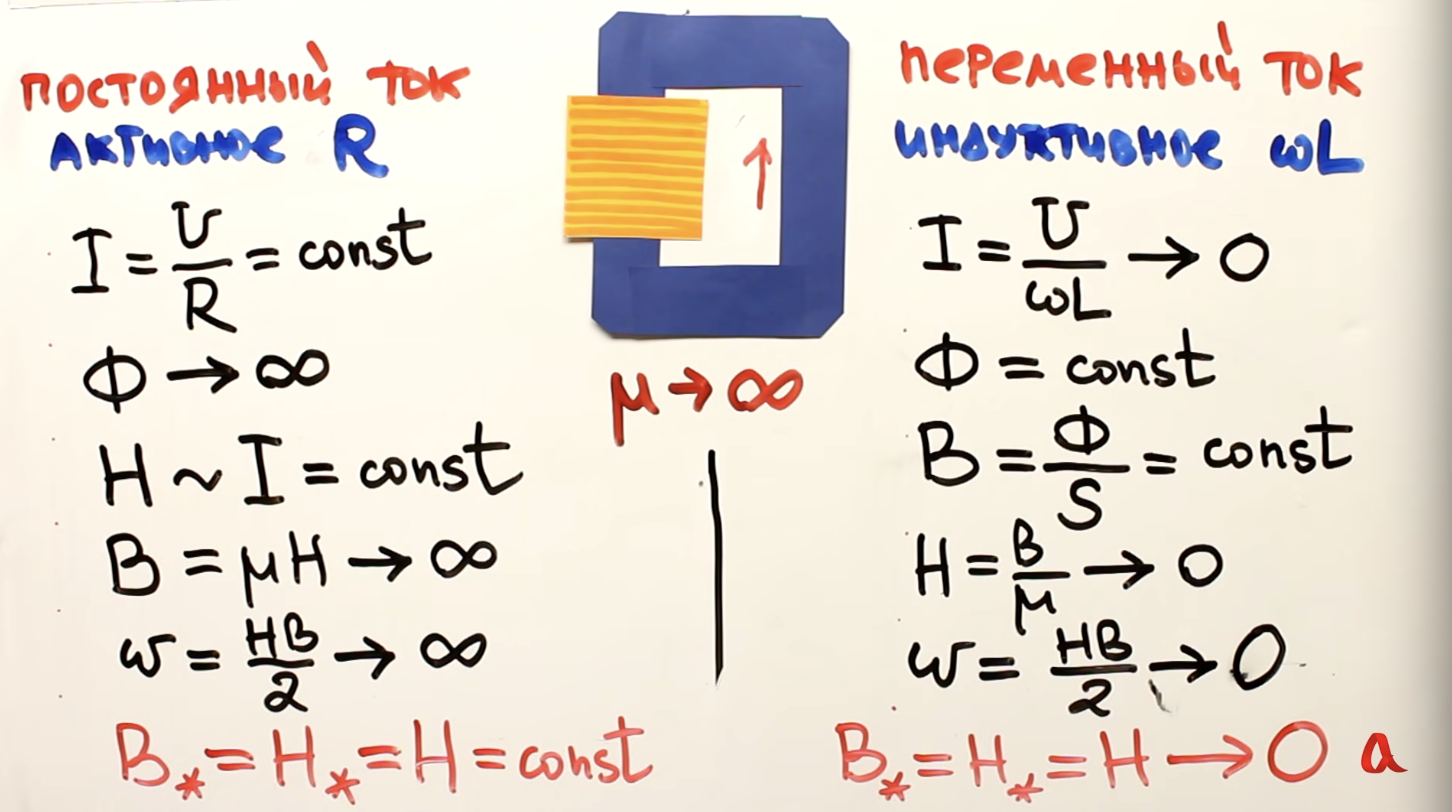 ПОСТОЯННЫЙ ТОК
АКТИВНОЕ R
I = U/R = const
Φ → ∞
H ~ I = const
B = μH → ∞
w = HB/2 → ∞
B* = H* = H = const
μ → ∞
ПЕРЕМЕННЫЙ ТОК
ИНДУКТИВНОЕ ωL
I = U/ωL → 0
Φ = const
B = Φ/S = const
H = B/μ → 0
w = HB/2 → 0
B* = H* = H → 0 a